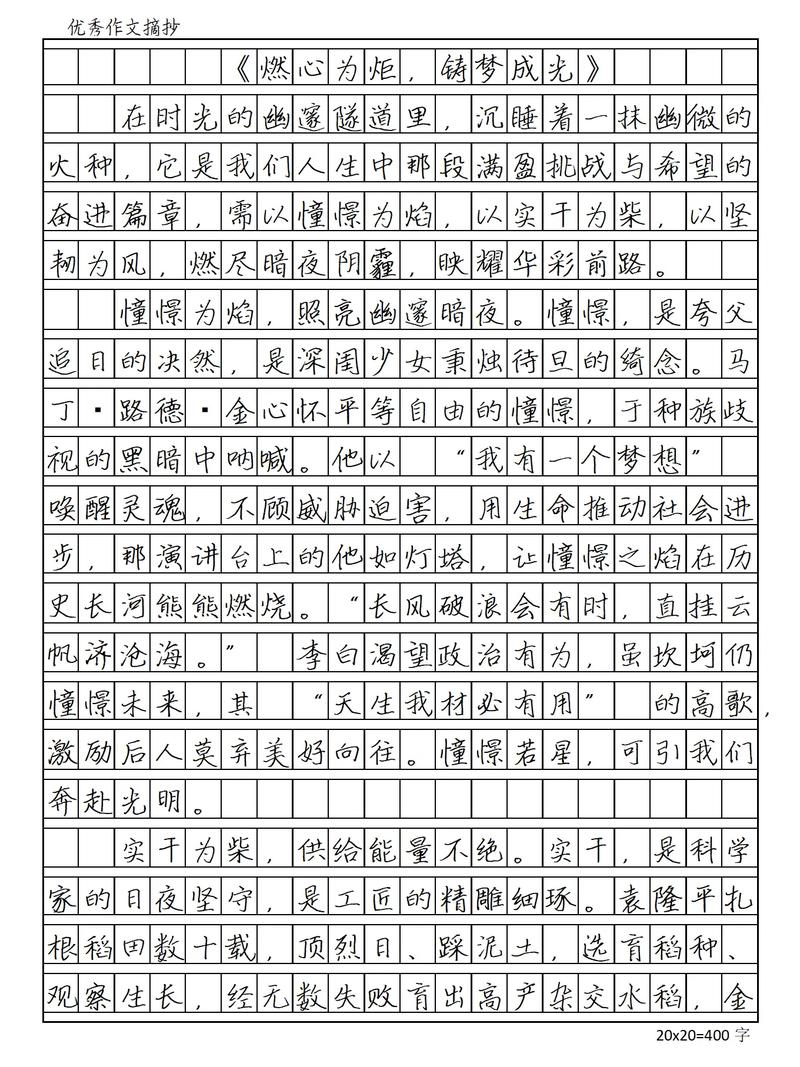 优秀作文摘抄
《燃心为炬，铸梦成光》
在时光的幽邃隧道里，沉睡着一抹幽微的
火种，它是我们人生中那段满盈挑战与希望的
奋进篇章，需以憧憬为焰，以实干为柴，以坚
韧为风，燃尽暗夜阴霾，映耀华彩前路。
憧憬为焰，照亮幽邃暗夜。憧憬，是夸父
追日的决然，是深闺少女秉烛待旦的绮念。马
丁·路德·金心怀平等自由的憧憬，于种族歧
视的黑暗中呐喊。他以“我有一个梦想”
唤醒灵魂，不顾威胁迫害，用生命推动社会进
步，那演讲台上的他如灯塔，让憧憬之焰在历
史长河熊熊燃烧。“长风破浪会有时，直挂云
帆济沧海。”李白渴望政治有为，虽坎坷仍
憧憬未来，其“天生我材必有用”的高歌，
激励后人莫弃美好向往。憧憬若星，可引我们
奔赴光明。
实干为柴，供给能量不绝。实干，是科学
家的日夜坚守，是工匠的精雕细琢。袁隆平扎
根稻田数十载，顶烈日、踩泥土，选育稻种、
观察生长，经无数失败育出高产杂交水稻，金
20x20=400 字